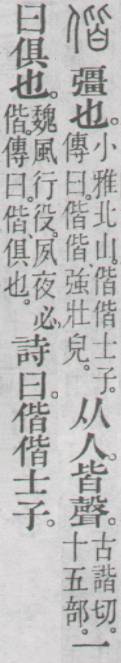 偕彊也。小雅北山。偕偕士子。傳曰。偕偕、強壯皃。从人。皆聲。古諧切。十五部。一
曰俱也。魏風行役。夙夜必偕。傳曰。偕、俱也。詩曰。偕偕士子。